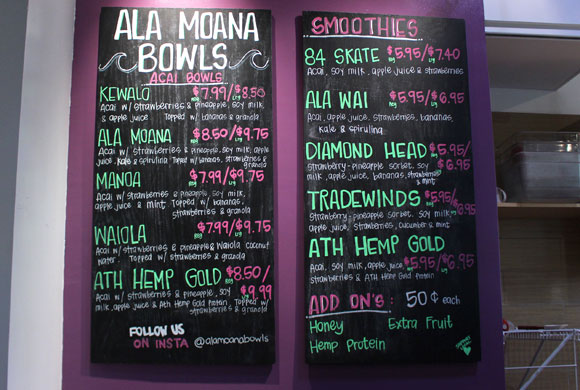 ALA MOANA
BOWLS
ACAI BOWLS
KEWALO $7.99/$8.50
REG LRG
Acai w/ strawberries & pineapple, soy milk
& apple juice Topped w/ bananas & granola
ALA MOANA $8.50/$9.75
REG LRG
Acai w/ strawberries & pineapple, soy milk, apple
juice, kale & spirulina Topped w/ bananas, strawberries &
granola
MANOA $7.99/$9.75
REG LRG
Acai w/ strawberries & pineapple, soy milk,
apple juice & mint Topped w/ bananas,
strawberries & granola
WAIOLA $7.99/$9.75
REG LRG
Acai w/ strawberries & pineapple & Waiola coconut
water. Topped w/ strawberries & granola
ATH HEMP GOLD $8.50/
REG $9.99
Acai w/ strawberries & pineapple, soy
milk, apple juice & Ath Hemp Gold Protein. Topped w/
strawberries & granola
FOLLOW US
ON INSTA @alamoanabowls
SMOOTHIES
84 SKATE $5.95/$7.40
REG LRG
Acai, soy milk, apple juice & strawberries
ALA WAI $5.95/$6.95
REG LRG
Acai, apple juice, strawberries, bananas,
kale & spirulina
DIAMOND HEAD $5.95/
REG $6.95
Strawberry-pineapple sorbet, soy
milk, apple juice, bananas, strawberries
& mint
TRADEWINDS $5.95/
$6.95
Strawberry-pineapple sorbet, soy milk,
apple juice, strawberries, cucumber & mint
ATH HEMP GOLD
$5.95/$6.95
Acai, soy milk, apple juice,
strawberries & ATH Hemp Gold Protein
ADD ON'S: 50¢ each
Honey Extra Fruit
Hemp Protein